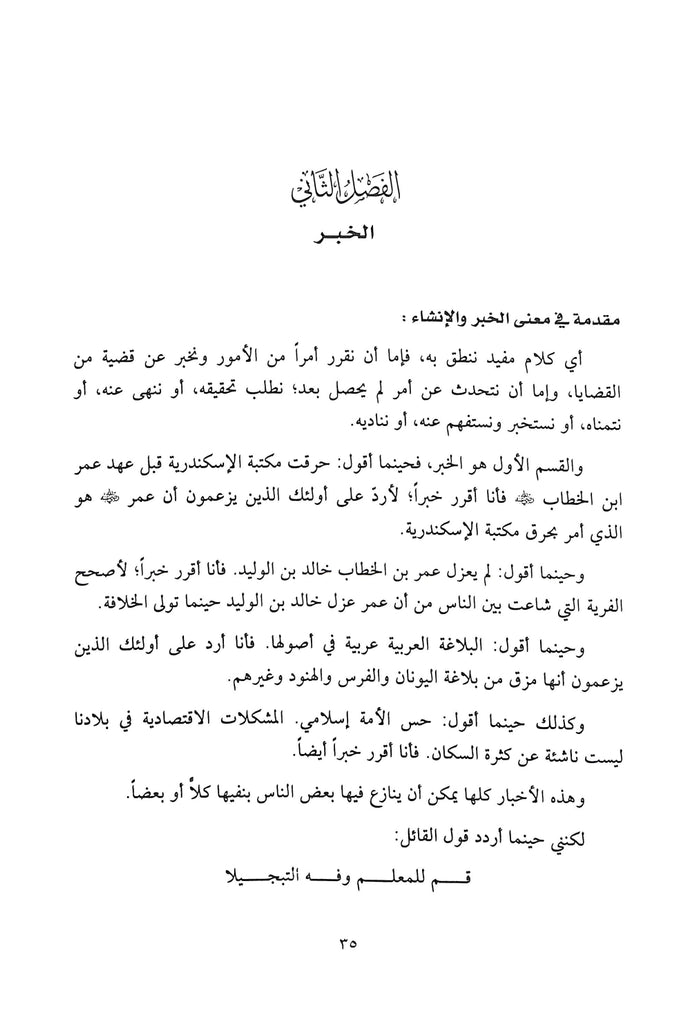 الفَصْلُ الثَّانِي
الخبر
مقدمة في معنى الخبر والإنشاء :
أي كلام مفيد ننطق به، فإما أن نقرر أمراً من الأمور ونخبر عن قضية من
القضايا، وإما أن نتحدث عن أمر لم يحصل بعد؛ نطلب تحقيقه، أو ننهى عنه، أو
نتمناه، أو نستخبر ونستفهم عنه، أو نناديه.
والقسم الأول هو الخبر، فحينما أقول: حرقت مكتبة الإسكندرية قبل عهد عمر
ابن الخطاب ﷺ فأنا أقرر خبراً؛ لأردّ على أولئك الذين يزعمون أن عمر ﷺ هو
الذي أمر بحرق مكتبة الإسكندرية.
وحينما أقول: لم يعزل عمر بن الخطاب خالد بن الوليد. فأنا أقرر خبراً؛ لأصحح
الفرية التي شاعت بين الناس من أن عمر عزل خالد بن الوليد حينما تولى الخلافة.
وحينما أقول: البلاغة العربية عربية في أصولها. فأنا أرد على أولئك الذين
يزعمون أنها مزق من بلاغة اليونان والفرس والهنود وغيرهم.
وكذلك حينما أقول: حس الأمة إسلامي. المشكلات الاقتصادية في بلادنا
ليست ناشئة عن كثرة السكان. فأنا أقرر خبراً أيضاً.
وهذه الأخبار كلها يمكن أن ينازع فيها بعض الناس بنفيها كلاً أو بعضاً.
لكنني حينما أردد قول القائل:
قـــم للمعلـــم وفـــه التبجـــيلا
٣٥